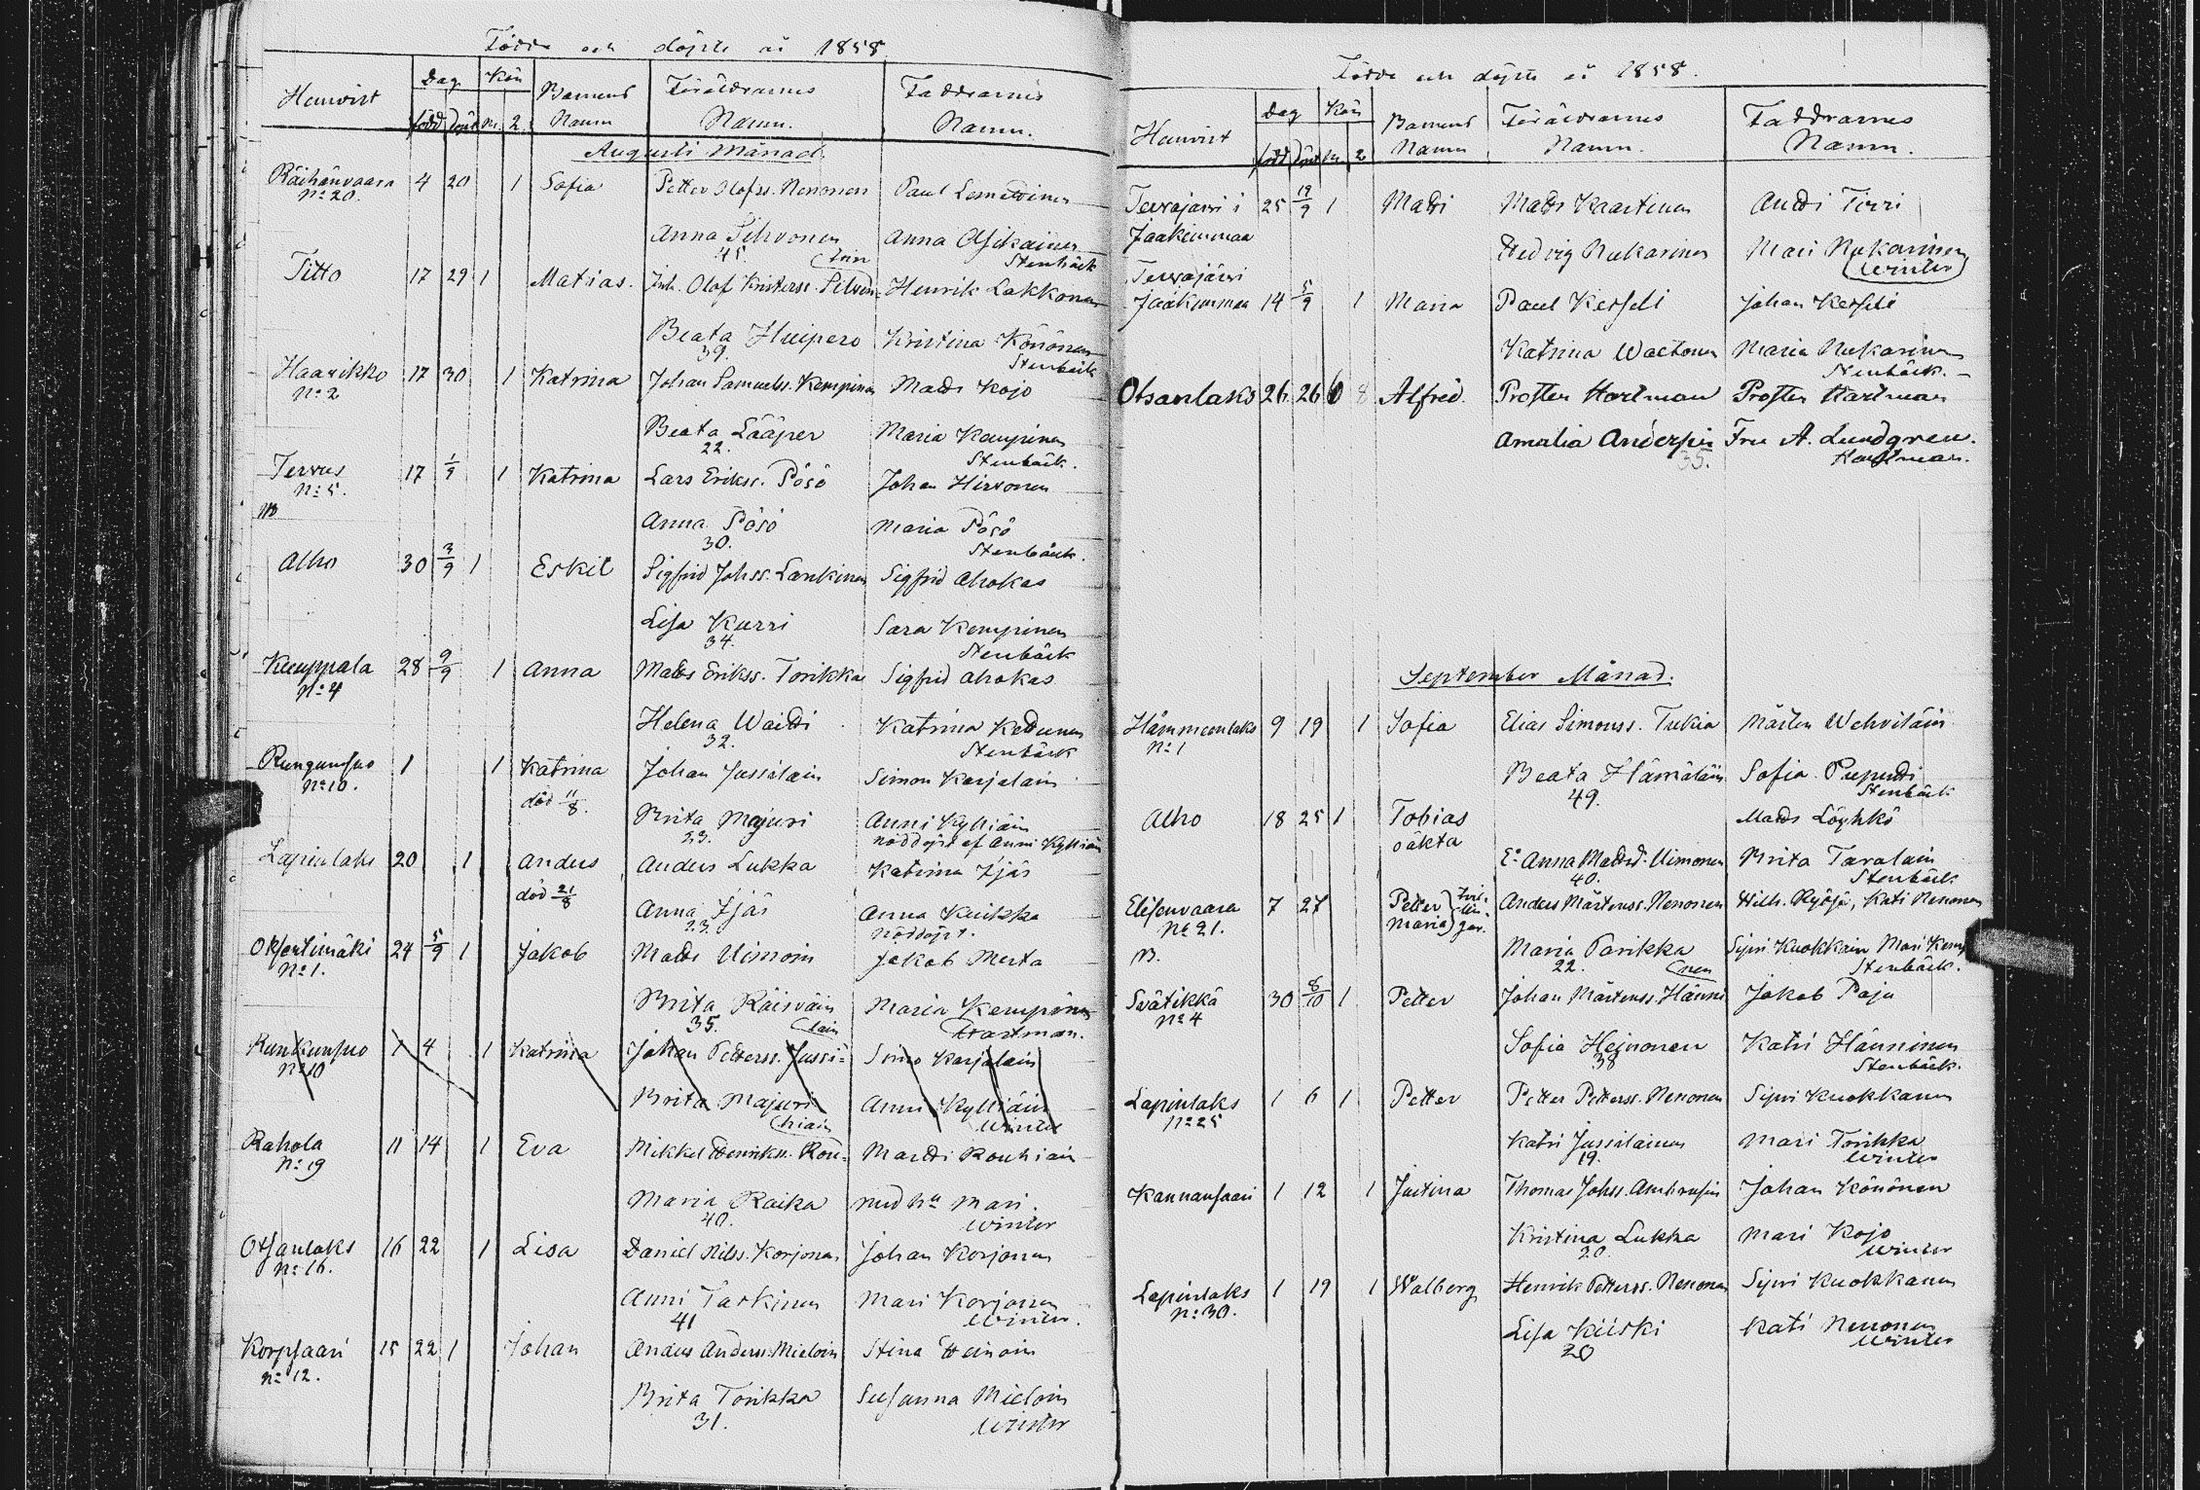 Födde och döpte år 1858
Hemvist Dag Kön Barnens Namn Föräldrarnes Namn. Faddrarnes Namn.
född döpt m. 2.
Augusti Månad.
Räihänvaara 4 20 1 Sofia Petter Olofss. Nenonen Paul
No 20.
Anna Sihvonen Anna Asikainen
45. Stenbäck
Titto 17 29 1 Matias. Joh. Olof Kristerss. Henrik Lakkonen
Beata Huipero Kristina Könönen
39. Stenbäck
Haarikko 17 30 1 Katrina Johan Samuelss. Kempinen Matts Kojo
No 2
Beata Lääper Maria Kempinen
22. Stenbäck.
Tervus 17 1/9 1 Katrina Lars Erikss. Pösö Johan Hirvonen
No 5.
Anna Pösö Maria Pösö
30. Stenbäck.
Alho 30 3/9 1 Eskil Sigfrid Johss. Lankinen Sigfrid Ahokas
Lisa Kurri Sara Kempinen
34. Stenbäck
Kumppala 28 9/9 1 Anna Matts Erikss. Torikka Sigfrid Ahokas
No 4
Helena Waitti Katrina
32. Stenbäck
1 1 Katrina Johan Jussilain Simon Karjalain
No 10. död 11/8.
Brita Majuri Anni Kylliäin
23. nöddöpt af Anni Kylliäin
Lapinlaks 20 1 Anders Anders Lukka Katrina Äjäs
död 21/8
Anna Äjäs Anna Kuikka
23. nöddöpt.
24 5/9 1 Jakob Matts Uimoin Jakob Merta
No 1.
Brita Räisväin Maria Kempinen
35. Hartman.
Kunkunsuo 1 4 1 Katrina Johan Petterss. Jussi= Simo Karjalain
No 10 lain
Brita Majuri Anni Kylliäin
Winter
Rahola 11 14 1 Eva Mikkel Henrikss. Rou= Martti Rouhiain
No 19 hiain
Maria Raika med hu Mari.
40. Winter
Otsanlaks 16 22 1 Lisa Daniel Nilss. Korjonen Johan Korjonen
No 16.
Anni Tarkinen Mari Korjonen
41 Winter.
Korpsaari 15 22 1 Johan Anders Anderss. Mieloin Stina Heinoin
No 12.
Brita Torikka Susanna Mieloin
31. Winter
Födde och döpte år 1858.
Hemvist Dag Kön Barnens Namn Föräldrarnes Namn. Faddrarnes Namn.
född döpt m 2
Tervajärvi i 25 19/9 1 Matti Matts Kaartinen Antti Tirri
Jaakimmaa
Hedvig Nukarinen Mari Nukarinen
Winter
Tervajärvi
Jaakimmaa 14 5/9 1 Maria Paul Kesseli Johan Kesseli
Katrina Maria Nukarinen
Stenbäck.
Otsanlaks 26 26 Alfred. Prosten Hartman Prosten Hartman
Amalia Fru A. Lundgren.
35. Hartman.
September Månad.
Hämmeenlaks 9 19 1 Sofia Elias Simonss. Tukia Mårten Wehviläin
No 1
Beata Hämäläin Sofia Puputti
49. Stenbäck
Alho 18 25 1 Tobias Matts Löyhkö
oäkta
Anna Mattsd. Uimonen Brita Tavalain
40. Stenbäck
Elisenvaara 7 27 Petter Maria tvillingar. Anders Mårtenss. Nenonen Wilh. Ryöjä, Kati Nenonen
No 21.
Maria Parikka Sipri Kuokkain Mari
22. Stenbäck.
Svätikkä 30 8/10 1 Petter Johan Mårtenss. Hänni= Jakob Paju
No 4 nen
Sofia Heinonen Katri Hänninen
38 Stenbäck.
Lapinlaks 1 6 1 Petter Petter Petterss. Nenonen Sipri Kuokkanen
No 25
Katri Jussilainen Mari Torikka
19. Winter
Kannansaari 1 12 1 Justina Thomas Johss. Johan Könönen
Kristina Lukka Mari Kojo
20. Winter
Lapinlaks 1 19 1 Walborg Henrik Petterss. Nenonen Sipri Kuokkanen
No 30.
Lisa Kiiski Kati Nenonen
20 Winter